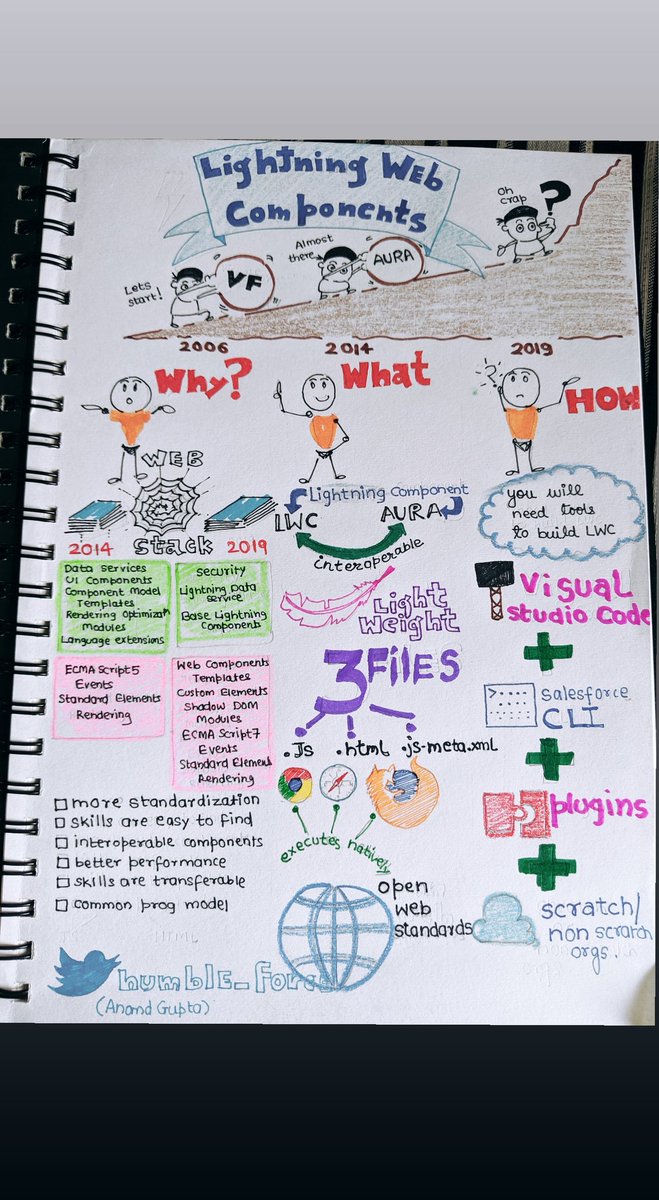 Lightning Web
Components
Lets
start!
VF
Almost
there
AURA
Oh
crap
?
2006
2014
2019
Why?
What
How
?
WEB
stack
2014
2019
Data Services
UI Components
Component Model
Templates
Rendering Optimizatn
Modules
Language extensions
Security
Lightning Data
Service
Base Lightning
Components
ECMA Script5
Events
Standard Elements
Rendering
Web Components
Templates
Custom Elements
Shadow DOM
Modules
ECMA Script7
Events
Standard Element
Rendering
more standardization
skills are easy to find
interoperable components
better performance
skills are transferable
common prog model
humble_force
(Anand Gupta)
Lightning Component
LWC
AURA
interoperable
Light
Weight
3 Files
.Js
.html
.js-meta.xml
executes natively
open
web
standards
you will
need tools
to build LWC
Visual
Studio Code
Salesforce
CLI
plugins
scratch/
non scratch
orgs.